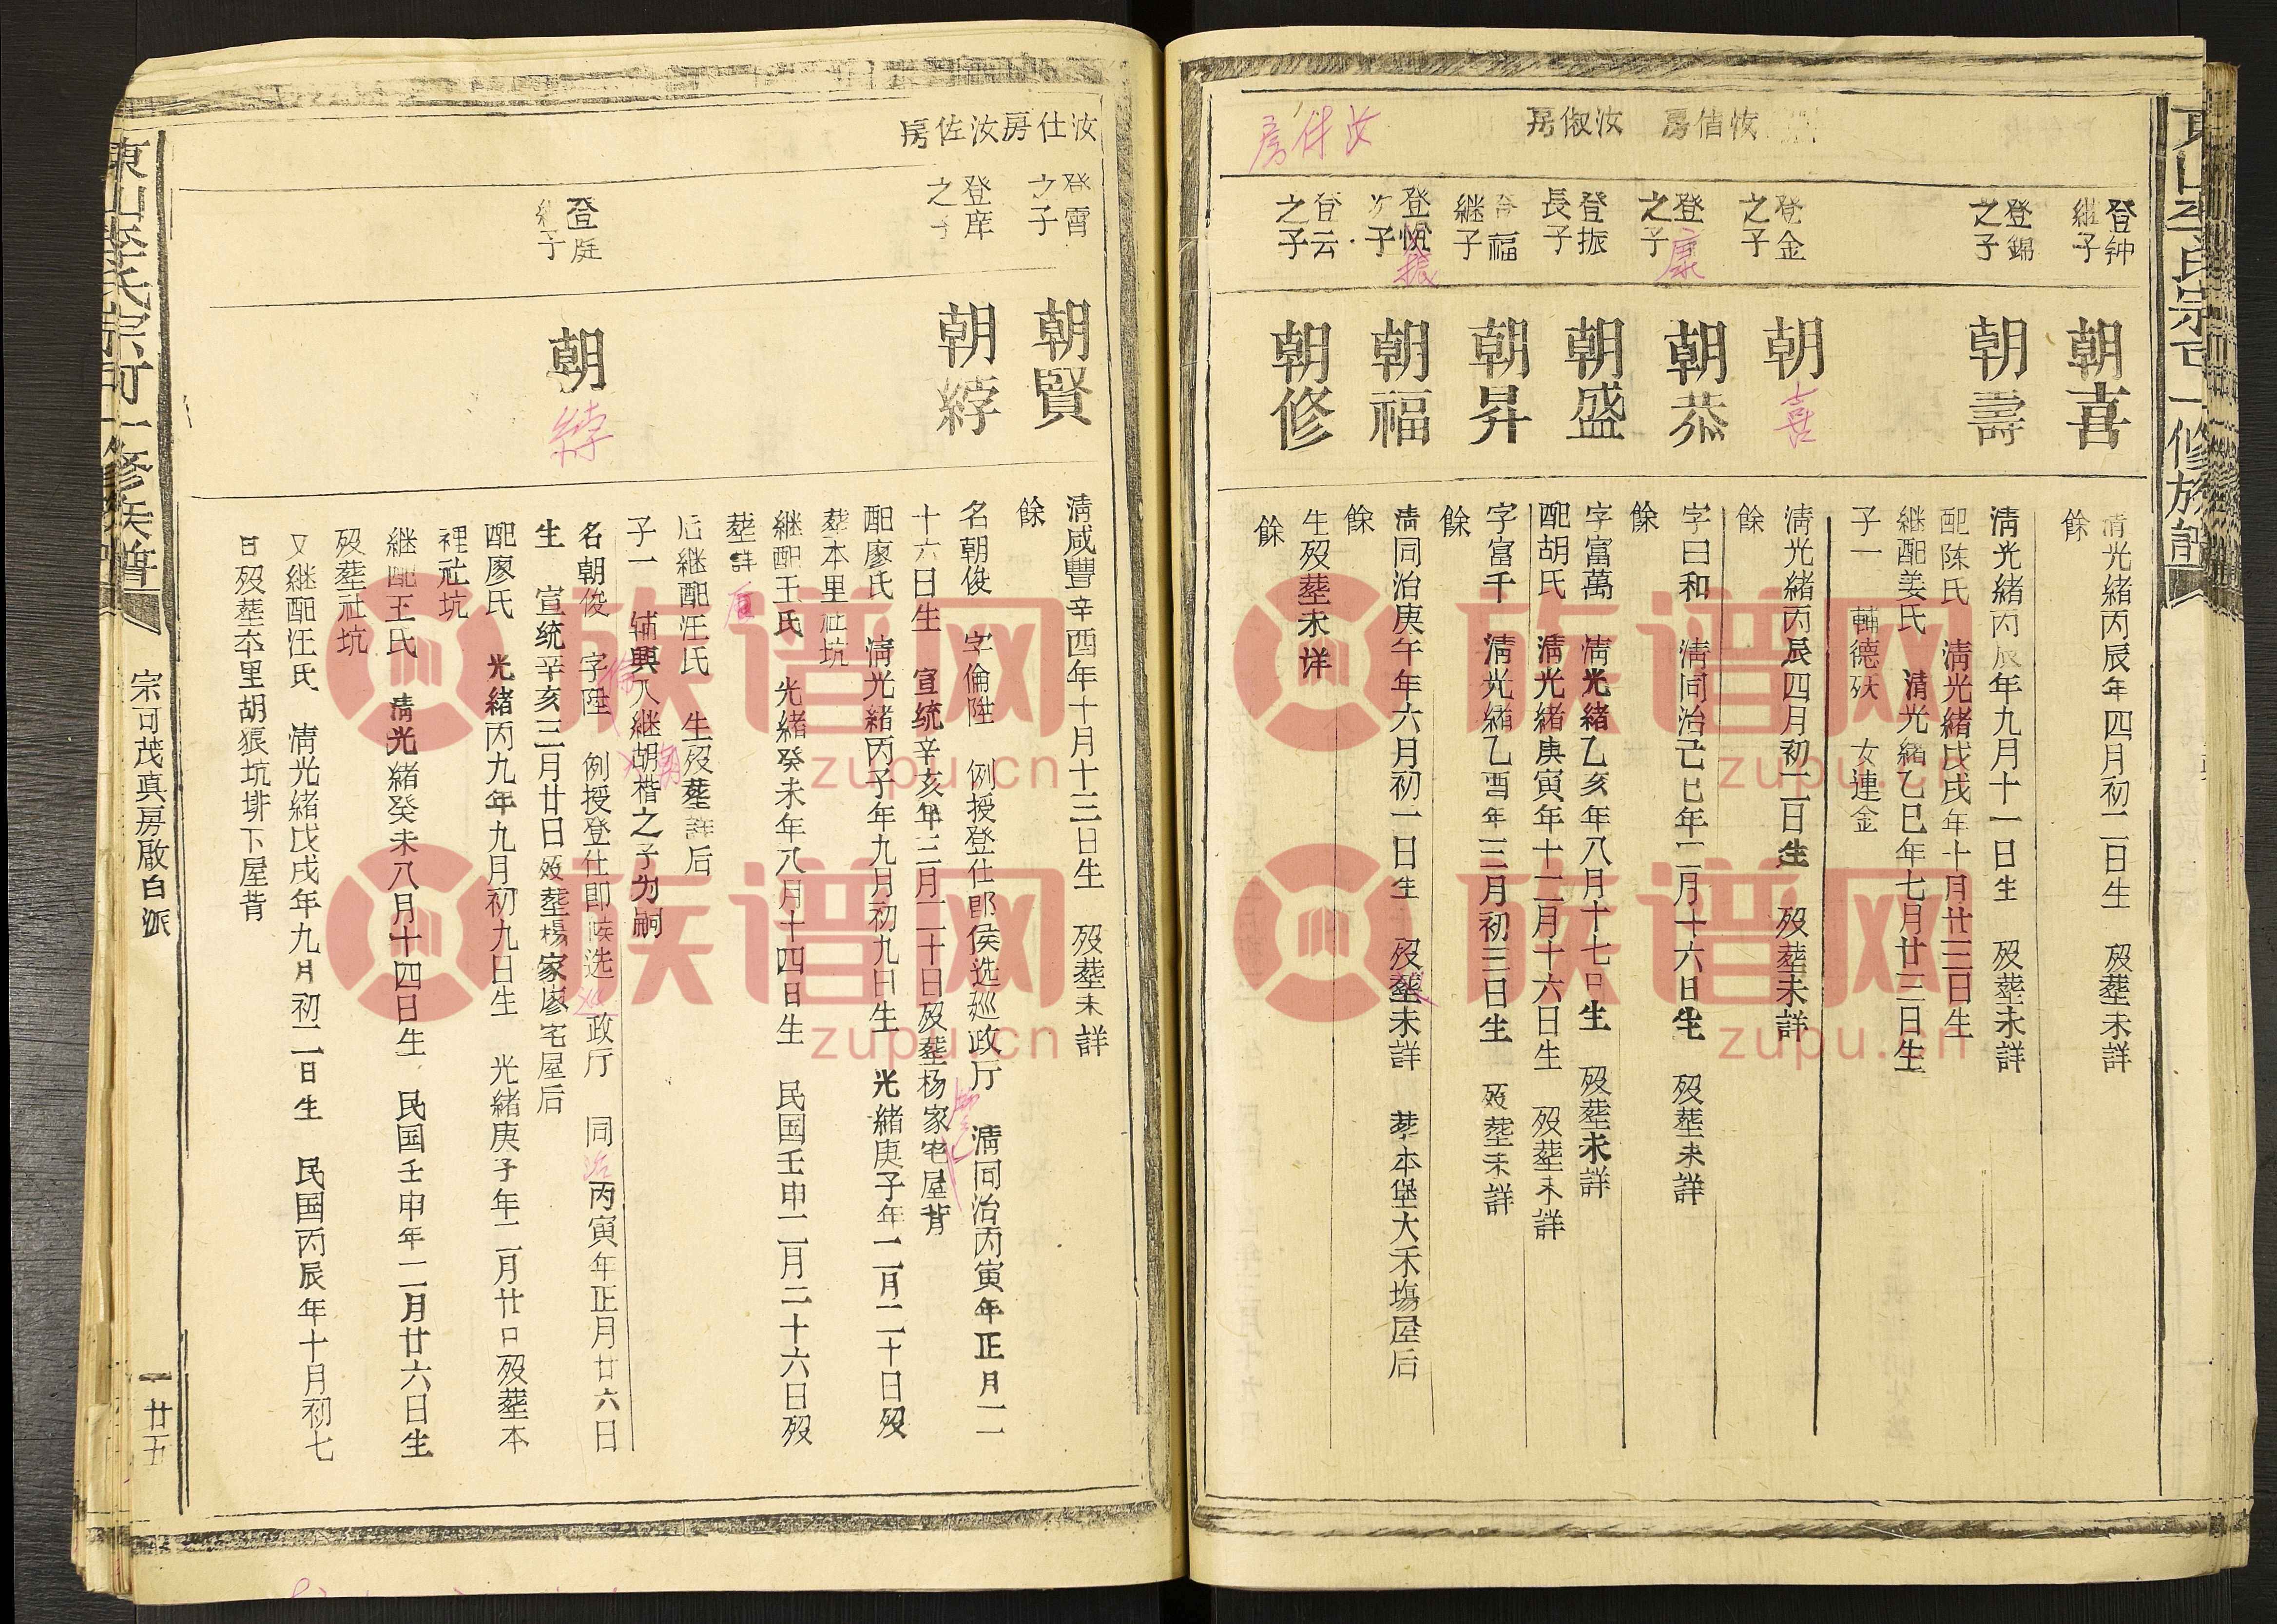 汝偆房
汝俶房
汝仕房
汝佐房
登钟
継子
朝喜
清光緒丙辰年四月初二日生　歿塟未詳
餘
登錦
之子
朝壽
清光緒丙辰年九月十一日生　歿塟未詳
配陈氏　清光緒戊戌年十月廿三日生
継配姜氏　清光緒乙巳年七月廿三日生
子一　輔德殀　女連金
登金
之子
朝喜
清光緒丙辰四月初二日生　歿塟未詳
餘
登康
之子
朝恭
字曰和　清同治己巳年二月十六日生　歿塟未詳
餘
登振
長子
朝盛
字富萬　清光緒乙亥年八月十七日生　歿塟未詳
配胡氏　清光緒庚寅年十二月十六日生　歿塟未詳
登福
継子
朝昇
字富千　清光緒乙酉年三月初三日生　歿塟未詳
餘
登振
次子
朝福
清同治庚午年六月初一日生　歿塟未詳　塟本堡大禾塲屋后
餘
登云
之子
朝修
生歿塟未详
餘
登霄
之子
朝賢
清咸豐辛酉年十月十三日生　歿塟未詳
餘
登庠
之子
朝綍
名朝俊　字倫陞　例授登仕郎侯选廵政厅　清同治丙寅年正月二
十六日生　宣统辛亥年三月二十日歿塟杨家宅屋背
配廖氏　清光緒丙子年九月初九日生　光緒庚子年二月二十日歿
塟本里社坑
継配王氏　光緒癸未年八月十四日生　民国壬申二月二十六日歿
塟詳后
后継配汪氏　生歿塟詳后
子一　辅興入継胡楷之子为嗣
登庭
継子
朝綍
名朝俊　字陞　例授登仕郎候选巡政厅　同治丙寅年正月廿六日
生　宣统辛亥三月廿日歿塟楊家廖宅屋后
配廖氏　光緒丙九年九月初九日生　光緒庚子年二月廿日歿塟本
裡社坑
継配王氏　清光緒癸未八月十四日生　民国壬申年二月廿六日生
歿塟社坑
又継配汪氏　清光緒戊戌年九月初二日生　民国丙辰年十月初七
日歿塟本里胡狠坑排下屋背
宗可茂真房啟白派
一廿五
族谱网
zupu.cn
族谱网
zupu.cn
族谱网
zupu.cn
族谱网
zupu.cn